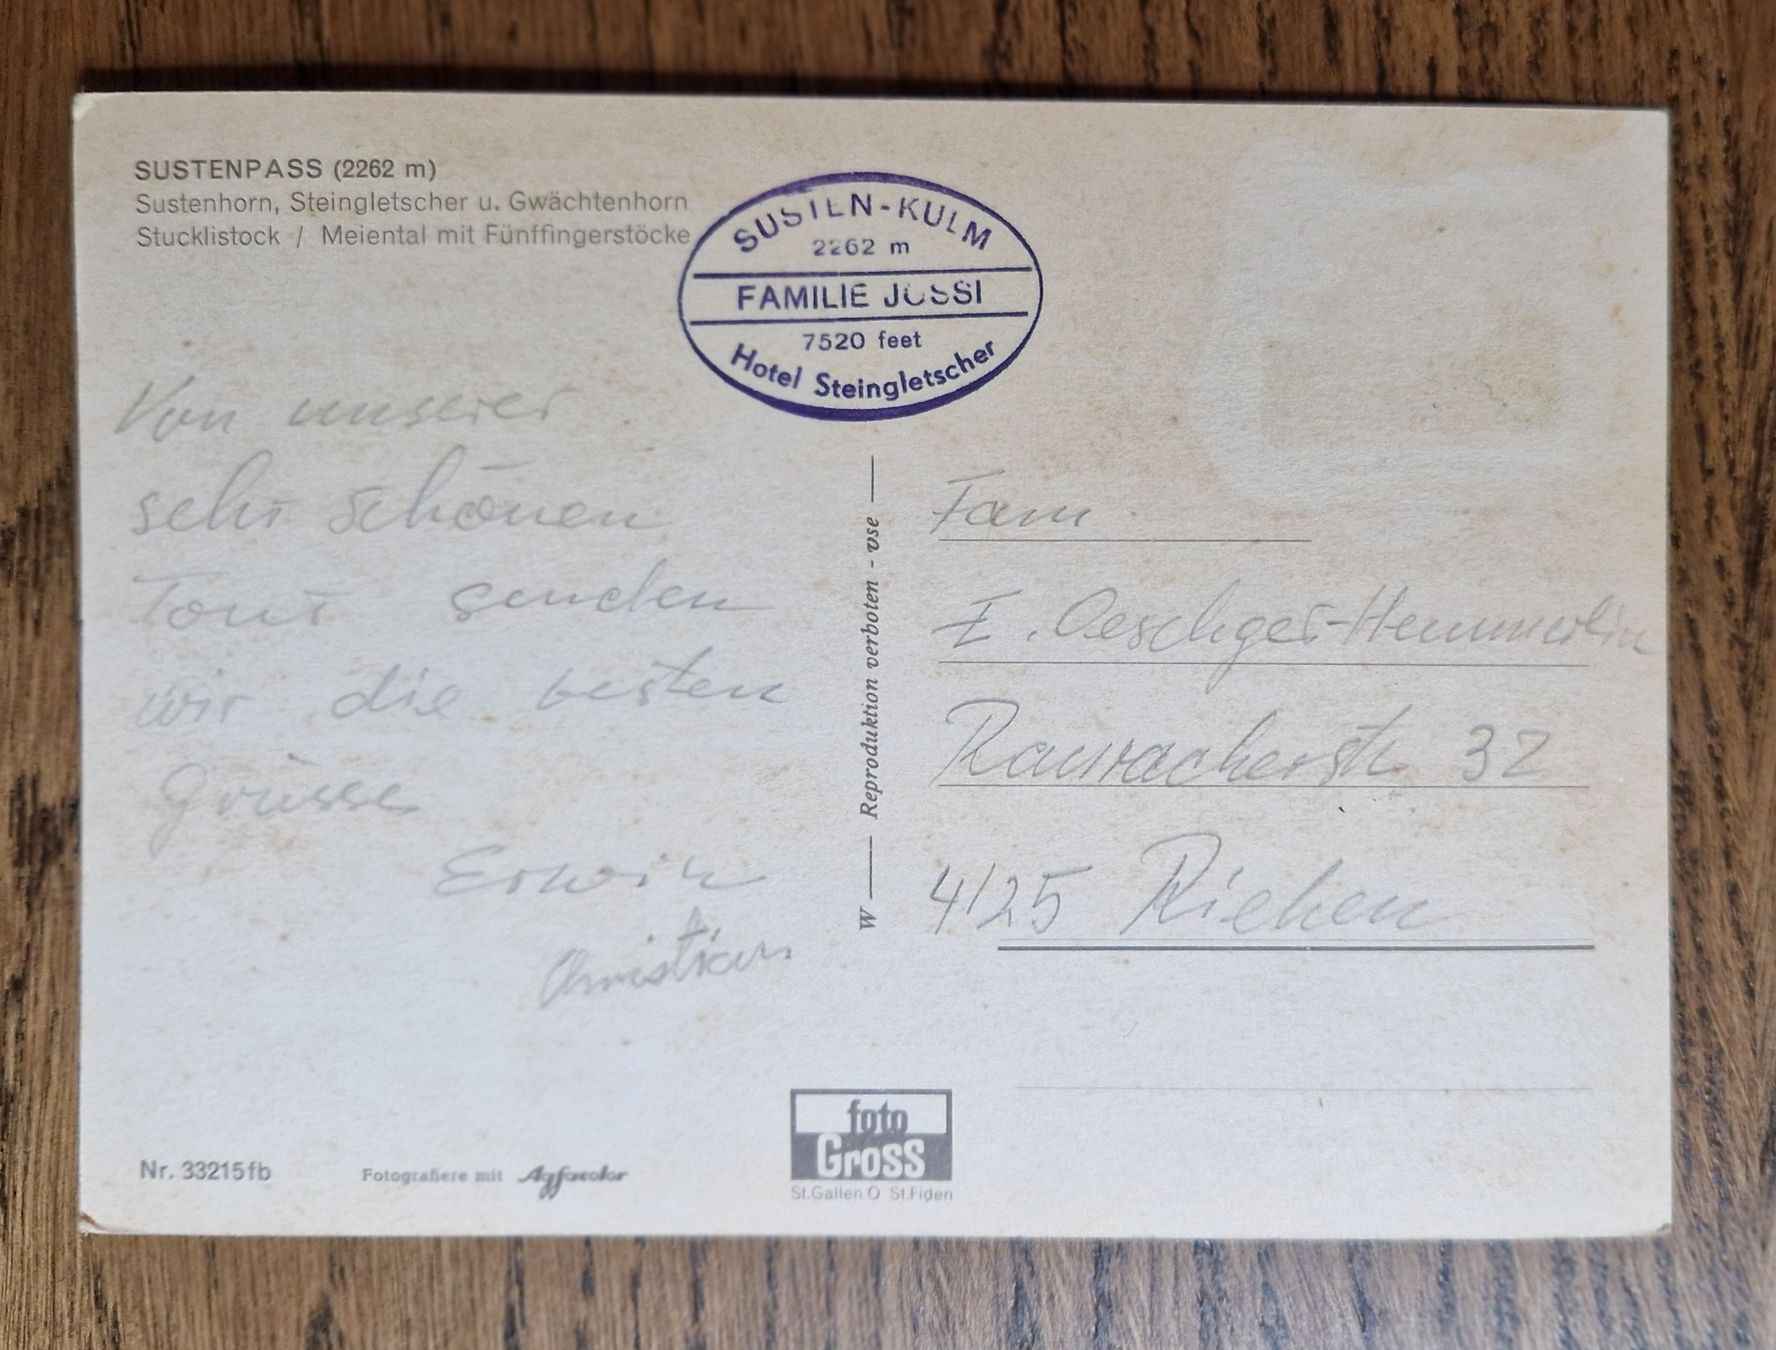 SUSTENPASS (2262 m)
Sustenhorn, Steingletscher u. Gwächtenhorn
Stucklistock / Meiental mit Fünffingerstöcke
SUSTEN-KULM
2262 m
FAMILIE JOSSI
7520 feet
Hotel Steingletscher
Von unserer
sehr schönen
Tour senden
wir die besten
Grüsse
Erwin
Christian
W — Reproduktion verboten - vse —
Fam
E. Oeschger-Hemmerlin
Rauracherstr 32
4125 Riehen
Nr. 33215fb
Fotografiere mit Agfacolor
foto
Gross
St.Gallen O St.Fiden